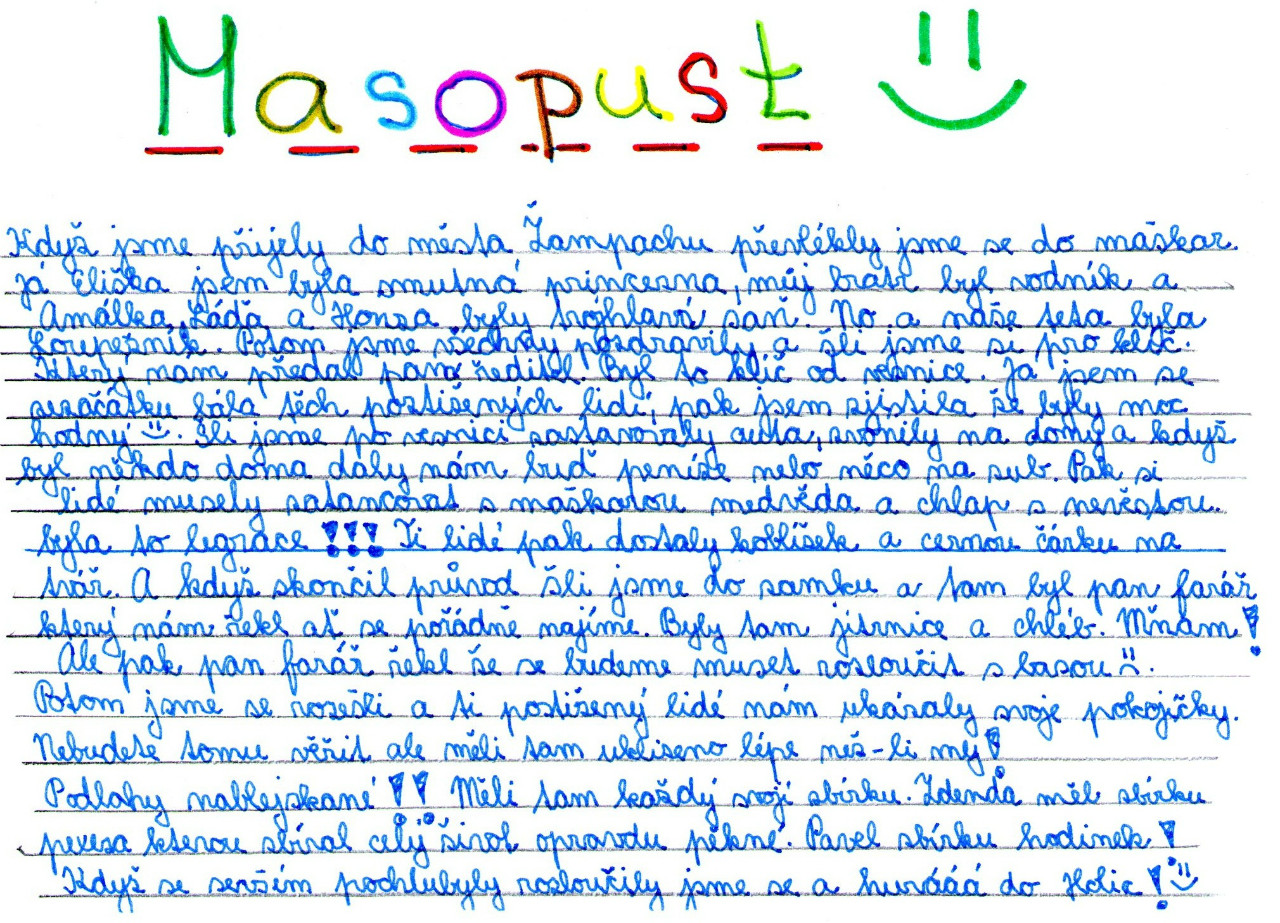 Masopust
Když jsme přijely do města Žampachu převlékly jsme se do maškar.
Já Eliška jsem byla smutná princezna, můj bratr byl vodník a
Amálka, Láďa a Honza byly trojhlavá saň. No a naše teta byla
Loupežník. Potom jsme všechny pozdravily a šli jsme si pro klíč.
Který nam předal pan ředitel. Byl to klíč od vesnice. Já jsem se
sezačátku bála těch postižených lidí, pak jsem zjistila že byly moc
hodný. Šli jsme po vesnici zastavovaly auta, zvonily na domy a když
byl někdo doma daly nám buď peníze nebo něco na zub. Pak si
lidé musely zatancovat s maškarou medvěda a chlap s nevěstou.
byla to legrace !!! Ti lidé pak dostaly koblížek a černou čárku na
tvář. A když skončil průvod šli jsme do zamku a tam byl pan farář
který nám řekl ať se pořádně najíme. Byly tam jitrnice a chléb. Mňam!
Ale pak pan farář řekl že se budeme muset rozloučit s basou.
Potom jsme se rozešli a ti postižený lidé nám ukázaly svoje pokojíčky.
Nebudete tomu věřit ale měli tam uklizeno lépe než-li my!
Podlahy nablejskané!! Měli tam každý svojí sbírku. Zdenda měl sbírku
pexesa kterou sbíral celý život opravdu pěkné. Pavel sbírku hodinek!
Když se sevším pochlubyly rozloučily jsme se a hurááá do Holic!